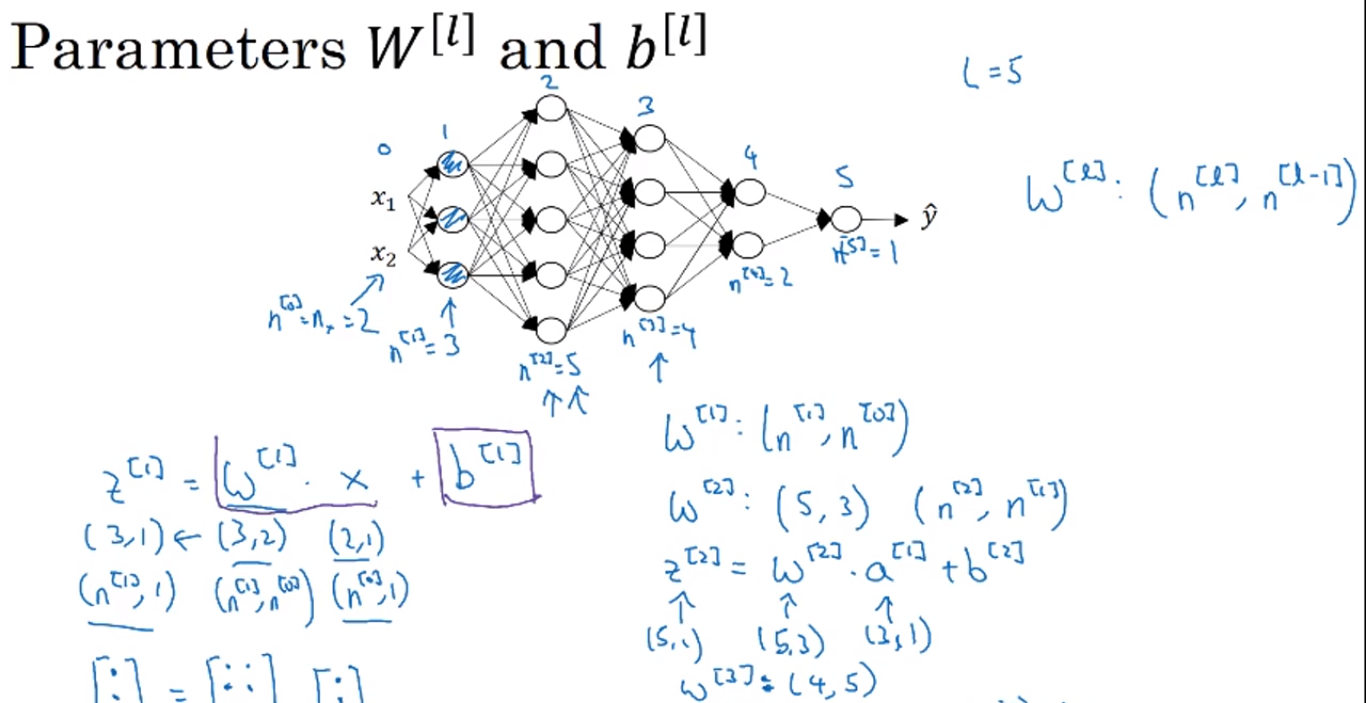 Parameters W^[l] and b^[l]
L = 5
0
1
2
3
4
5
x₁
x₂
ŷ
W^[l]: (n^[l], n^[l-1])
n^[0] = nₓ = 2
n^[1] = 3
n^[2] = 5
n^[3] = 4
n^[4] = 2
n^[5] = 1
z^[1] = W^[1] · x + b^[1]
(3,1) ← (3,2) (2,1)
(n^[1], 1) (n^[1], n^[0]) (n^[0], 1)
W^[1]: (n^[1], n^[0])
W^[2]: (5, 3) (n^[2], n^[1])
z^[2] = W^[2] · a^[1] + b^[2]
(5,1) (5,3) (3,1)
W^[3]: (4, 5)